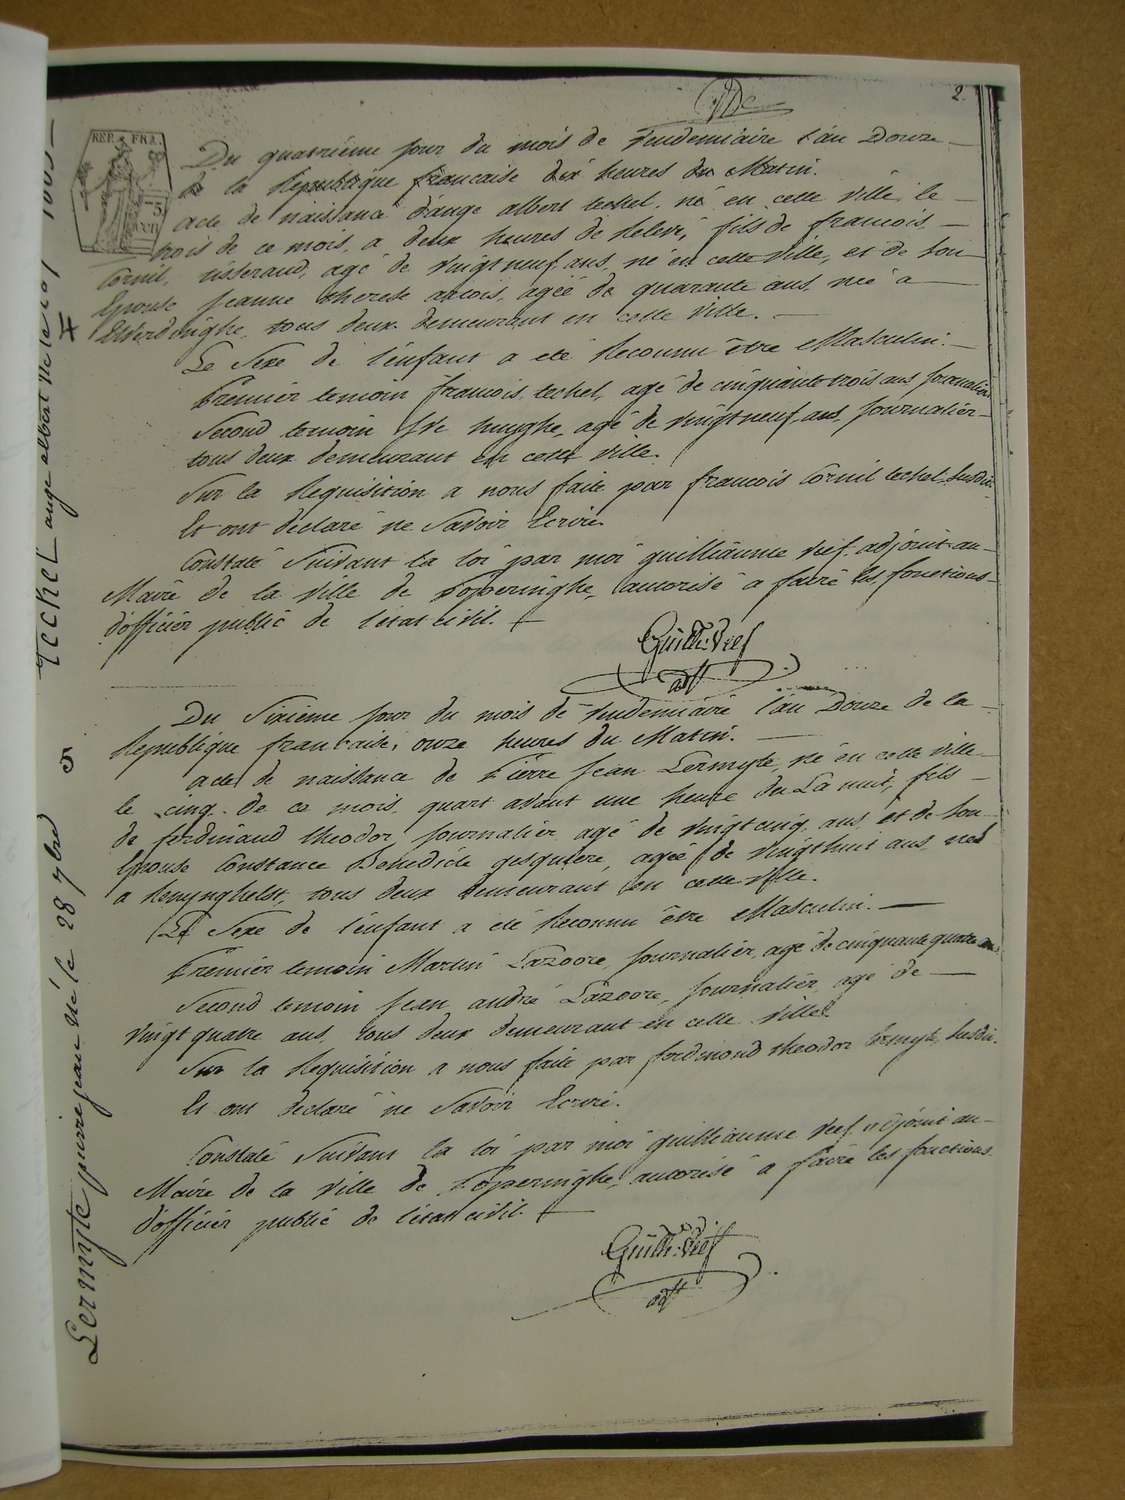 2.
REP. FRA.
Du quatriéme jour du mois de Vendemiaire l'án Douze
de la Republique francaise dix heures du Matin.
Acte de naissance d'ange albert techel, né en cette ville le
trois de ce mois, a deux heures de Relevé, fils de francois
Cornil, tisserand, agé de Vingt neuf ans, né en cette ville, et de son
Epouse Jeanne therese artois, agéé de quarante ans, néé a
Elverdinghe, tous deux demeurant en cette ville.
Le Sexe de l'énfant a eté Reconnu être Masculin.
Premiér temoin francois techel, agé de cinquante trois ans journaliér
Second temoin huyghe, agé de Vingt neuf ans, journaliér
tous deux demeurant en cette ville.
Sur la Requisition a nous faite par francois Cornil techel Susdit
Et ont declaré ne Savoir Ecrire.
Constaté Suivant la loi par moi guilliaume Veef adjoint au
Maire de la Ville de Poperinghe, autorisé a faire les fonctions
d'officiér public de l'état civil.
Guill: Veef
adjt
Du Sixiéme jour du mois de Vendemiaire l'án Douze de la
Republique francaise, onze heures du Matin.
acte de naissance de Pierre Jean Lermyte, né en cette ville
le cinq de ce mois, quart avant une heure du La nuit, fils
de ferdinand theodor, journaliér agé de Vingt cinq ans, et de son
Epouse Constance Benedicte gesquiere, agéé de Vingt huit ans, néé
a Renynghelst, tous deux demeurant en cette ville.
Le Sexe de l'énfant a eté Reconnu être Masculin.
Premiér temoin Martin Lazoore, journaliér, agé de cinquante quatre ans
Second temoin jean andré Lazoore, journaliér, agé de
Vingt quatre ans, tous deux demeurant en cette Ville
Sur la Requisition a nous faite par ferdinand theodor Lermyte, Susdit.
Et ont declaré ne Savoir Ecrire.
Constaté Suivant la loi par moi guilliaume Veef adjoint au
Maire de la Ville de Poperinghe, autorisé a faire les fonctions
d'officiér public de l'état civil.
Guill: Veef
adjt
4 Techel ange albert né le
5 Lermyte pierre jean né le 28 7bre